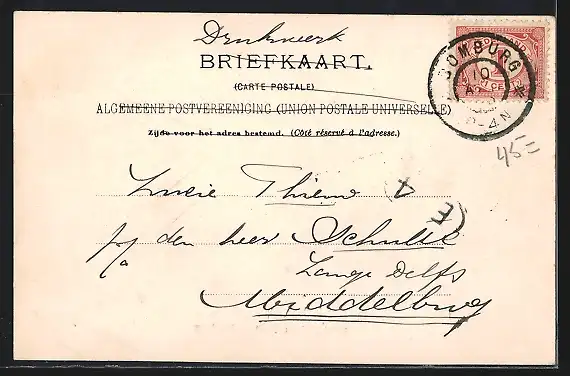 Drukwerk
BRIEFKAART.
(CARTE POSTALE)
ALGEMEENE POSTVEREENIGING (UNION POSTALE UNIVERSELLE)
Zijde voor het adres bestemd. (Côté réservé à l'adresse.)
DOMBURG
10
45=
Lucie
F A
den heer Schulte
Lange Delft
Middelburg